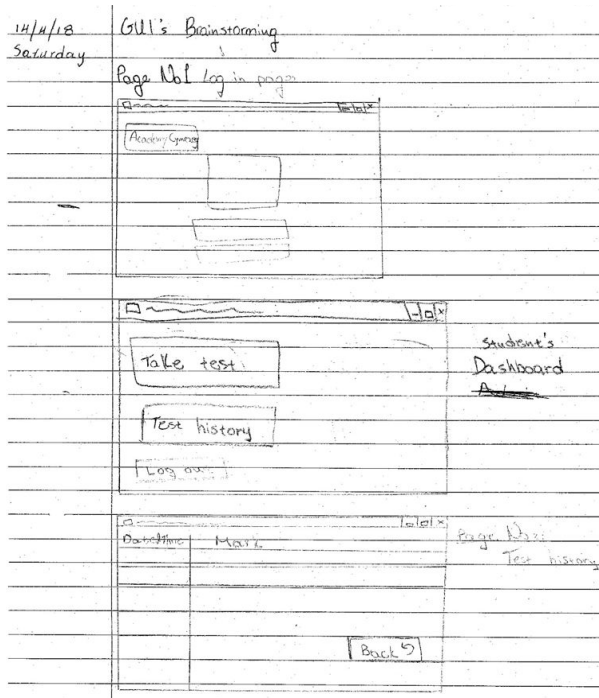 14/4/18
Saturday
GUI's Brainstorming
Page No1 Log in page
Academy
Take test
Test history
Log out
Student's
Dashboard
Date/time Mark
Page No3:
Test history
Back